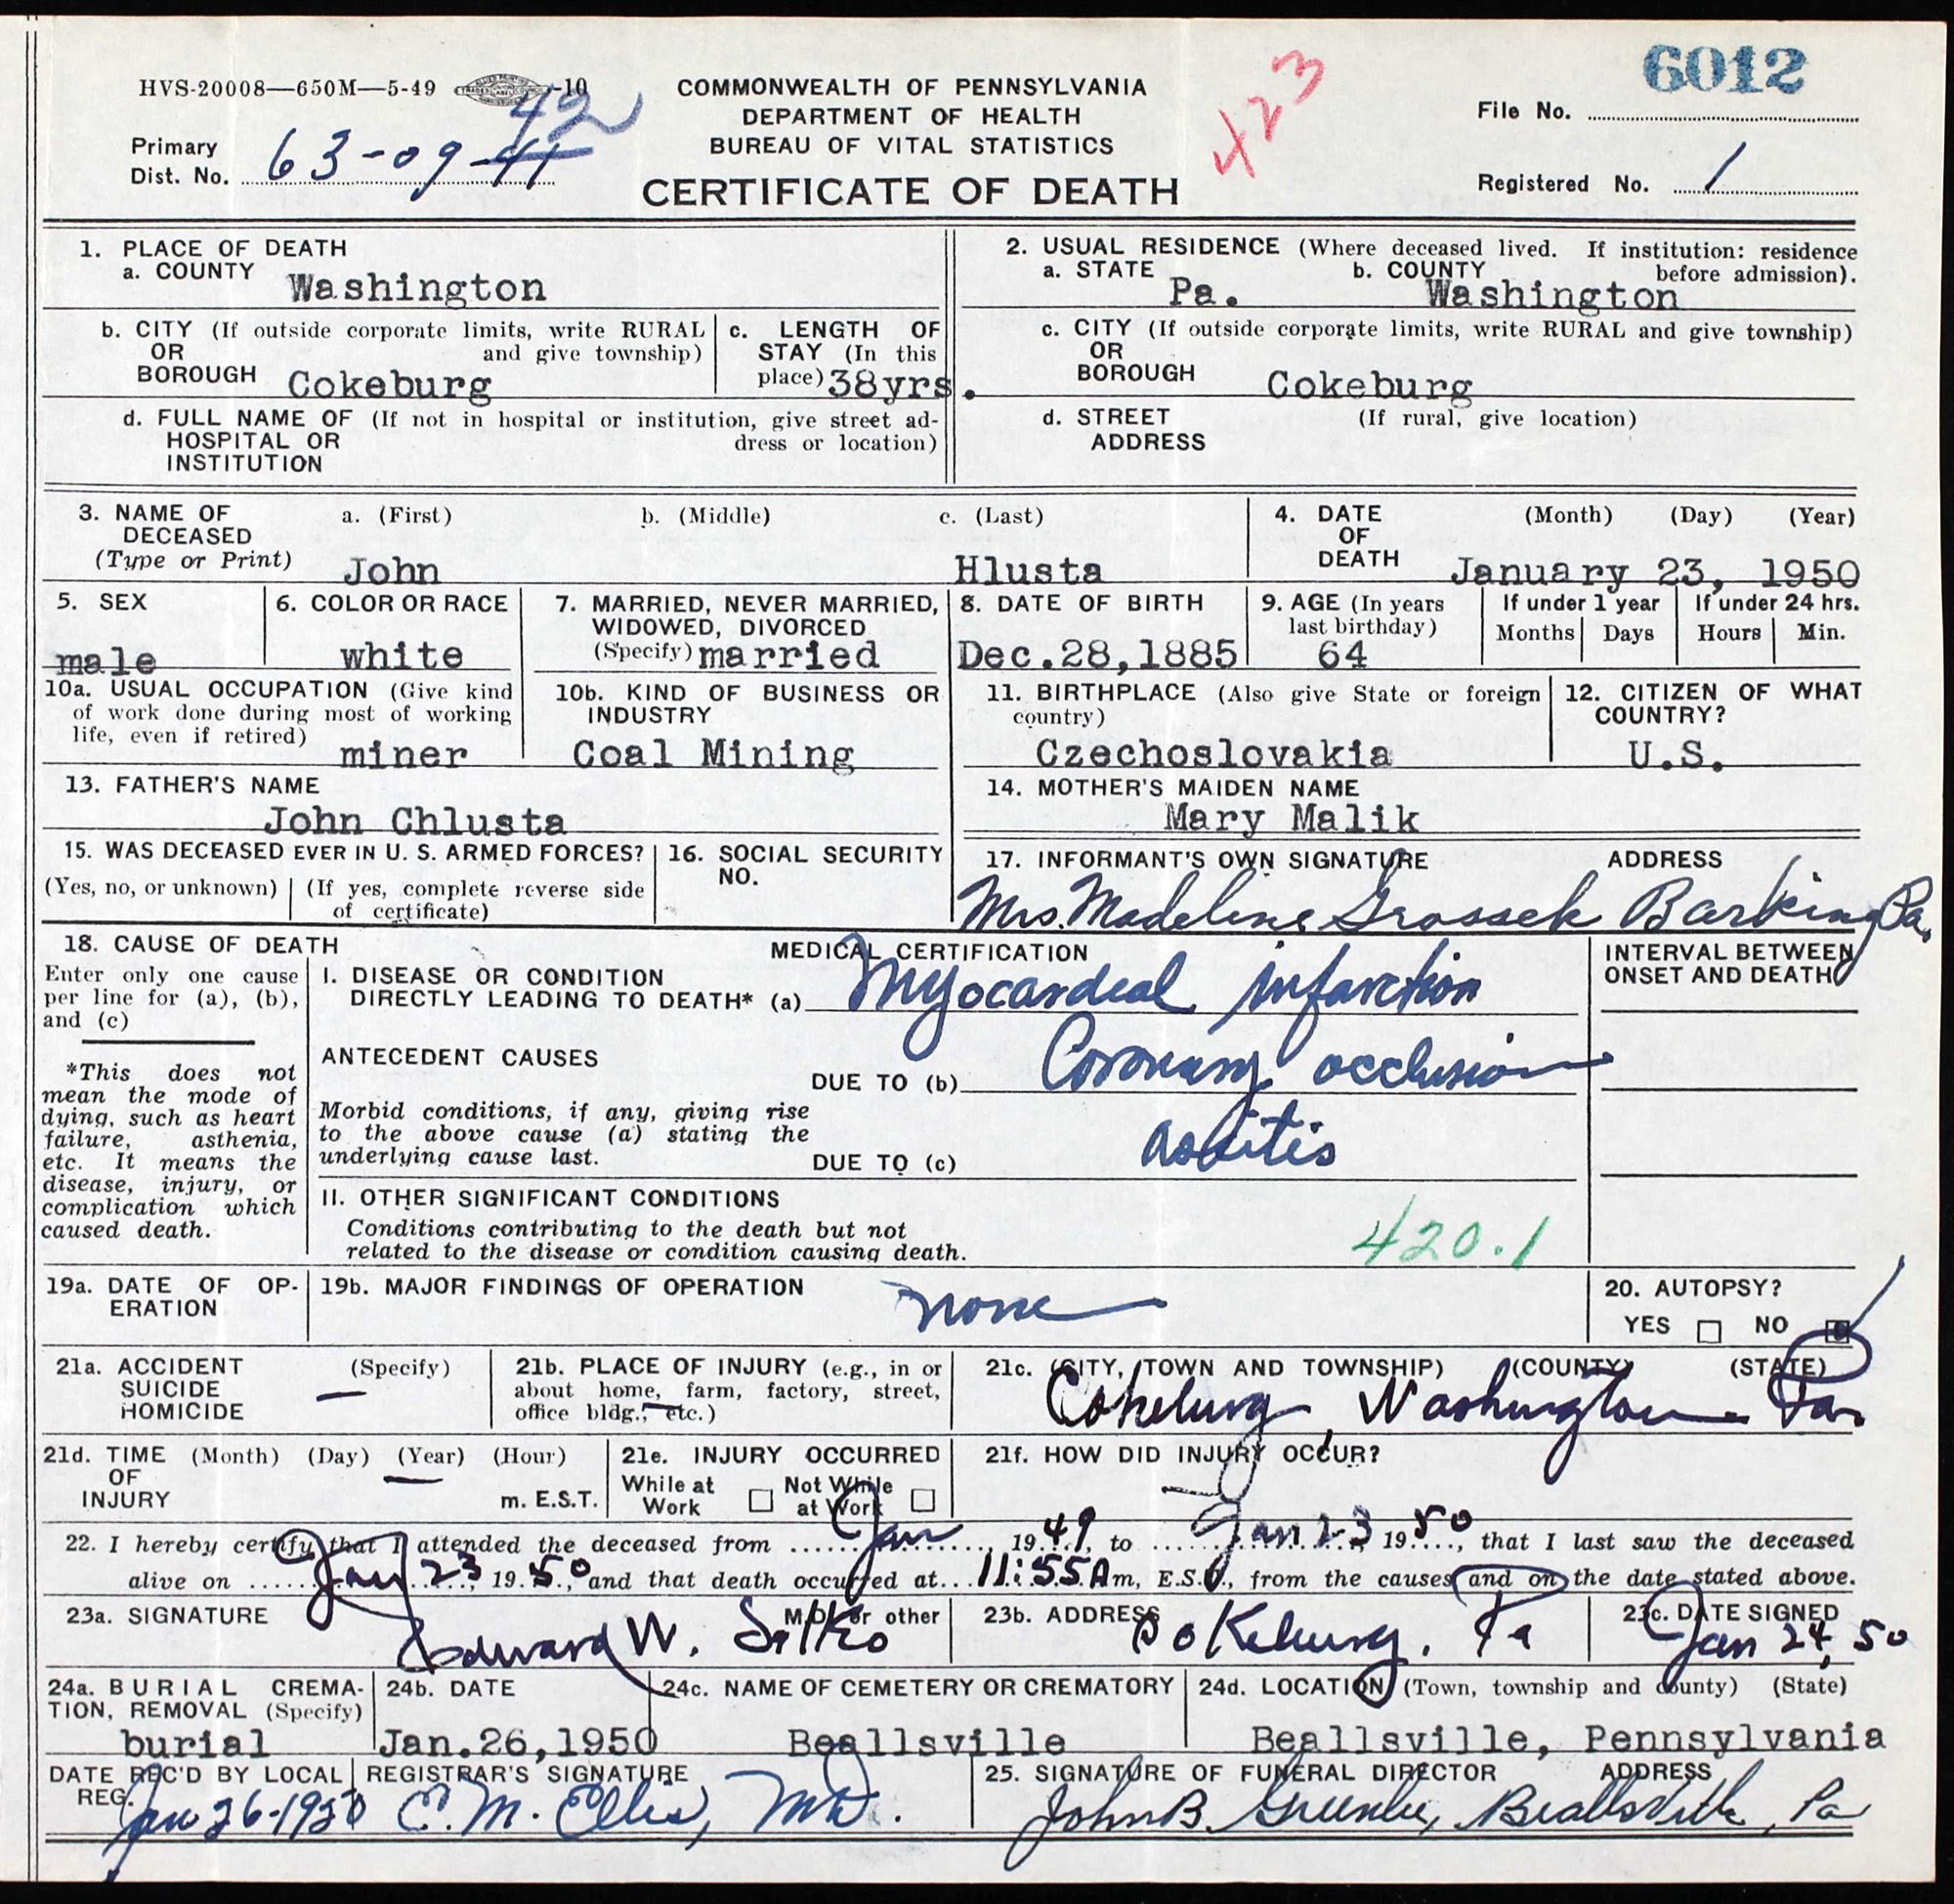 6012
HVS-20008—650M—5-49 -10
COMMONWEALTH OF PENNSYLVANIA
DEPARTMENT OF HEALTH
BUREAU OF VITAL STATISTICS
CERTIFICATE OF DEATH
423
File No.
Primary Dist. No. 63-09-41 42
Registered No. 1
1. PLACE OF DEATH
a. COUNTY Washington
b. CITY (If outside corporate limits, write RURAL
OR and give township)
BOROUGH Cokeburg
c. LENGTH OF
STAY (In this
place) 38yrs.
d. FULL NAME OF (If not in hospital or institution, give street ad-
HOSPITAL OR dress or location)
INSTITUTION
2. USUAL RESIDENCE (Where deceased lived. If institution: residence
before admission).
a. STATE Pa. b. COUNTY Washington
c. CITY (If outside corporate limits, write RURAL and give township)
OR
BOROUGH Cokeburg
d. STREET (If rural, give location)
ADDRESS
3. NAME OF a. (First) b. (Middle) c. (Last)
DECEASED
(Type or Print) John Hlusta
4. DATE (Month) (Day) (Year)
OF
DEATH January 23, 1950
5. SEX
male
6. COLOR OR RACE
white
7. MARRIED, NEVER MARRIED,
WIDOWED, DIVORCED
(Specify) married
8. DATE OF BIRTH
Dec.28,1885
9. AGE (In years
last birthday)
64
If under 1 year
Months Days
If under 24 hrs.
Hours Min.
10a. USUAL OCCUPATION (Give kind
of work done during most of working
life, even if retired)
miner
10b. KIND OF BUSINESS OR
INDUSTRY
Coal Mining
11. BIRTHPLACE (Also give State or foreign
country)
Czechoslovakia
12. CITIZEN OF WHAT
COUNTRY?
U.S.
13. FATHER'S NAME
John Chlusta
14. MOTHER'S MAIDEN NAME
Mary Malik
15. WAS DECEASED EVER IN U. S. ARMED FORCES?
(Yes, no, or unknown) (If yes, complete reverse side
of certificate)
16. SOCIAL SECURITY
NO.
17. INFORMANT'S OWN SIGNATURE ADDRESS
Mrs. Madeline Grossek Barking Pa.
18. CAUSE OF DEATH
Enter only one cause
per line for (a), (b),
and (c)
*This does not
mean the mode of
dying, such as heart
failure, asthenia,
etc. It means the
disease, injury, or
complication which
caused death.
MEDICAL CERTIFICATION
I. DISEASE OR CONDITION
DIRECTLY LEADING TO DEATH* (a) Myocardial infarction
ANTECEDENT CAUSES
DUE TO (b) Coronary occlusion
Morbid conditions, if any, giving rise
to the above cause (a) stating the
underlying cause last.
DUE TO (c)
II. OTHER SIGNIFICANT CONDITIONS
Conditions contributing to the death but not
related to the disease or condition causing death.
420.1
INTERVAL BETWEEN
ONSET AND DEATH
19a. DATE OF OP-
ERATION
19b. MAJOR FINDINGS OF OPERATION
none
20. AUTOPSY?
YES NO
21a. ACCIDENT (Specify)
SUICIDE —
HOMICIDE
21b. PLACE OF INJURY (e.g., in or
about home, farm, factory, street,
office bldg., etc.)
21c. (CITY, TOWN AND TOWNSHIP) (COUNTY) (STATE)
Cokeburg Washington Pa.
21d. TIME (Month) (Day) (Year) (Hour)
OF —
INJURY m. E.S.T.
21e. INJURY OCCURRED
While at Work Not While at Work
21f. HOW DID INJURY OCCUR?
22. I hereby certify that I attended the deceased from Jan 1949, to Jan 23 1950, that I last saw the deceased
alive on Jan 23, 1950, and that death occurred at 11:55 A m, E.S.T., from the causes and on the date stated above.
23a. SIGNATURE M.D. or other
Edward W. Sitko
23b. ADDRESS
Cokeburg, Pa
23c. DATE SIGNED
Jan 24, 50
24a. BURIAL CREMA-
TION, REMOVAL (Specify)
burial
24b. DATE
Jan.26,1950
24c. NAME OF CEMETERY OR CREMATORY
Beallsville
24d. LOCATION (Town, township and county) (State)
Beallsville, Pennsylvania
DATE REC'D BY LOCAL
REG.
Jan 26-1950
REGISTRAR'S SIGNATURE
C. M. Ellis, MD.
25. SIGNATURE OF FUNERAL DIRECTOR ADDRESS
John B. Greenlee, Beallsville, Pa